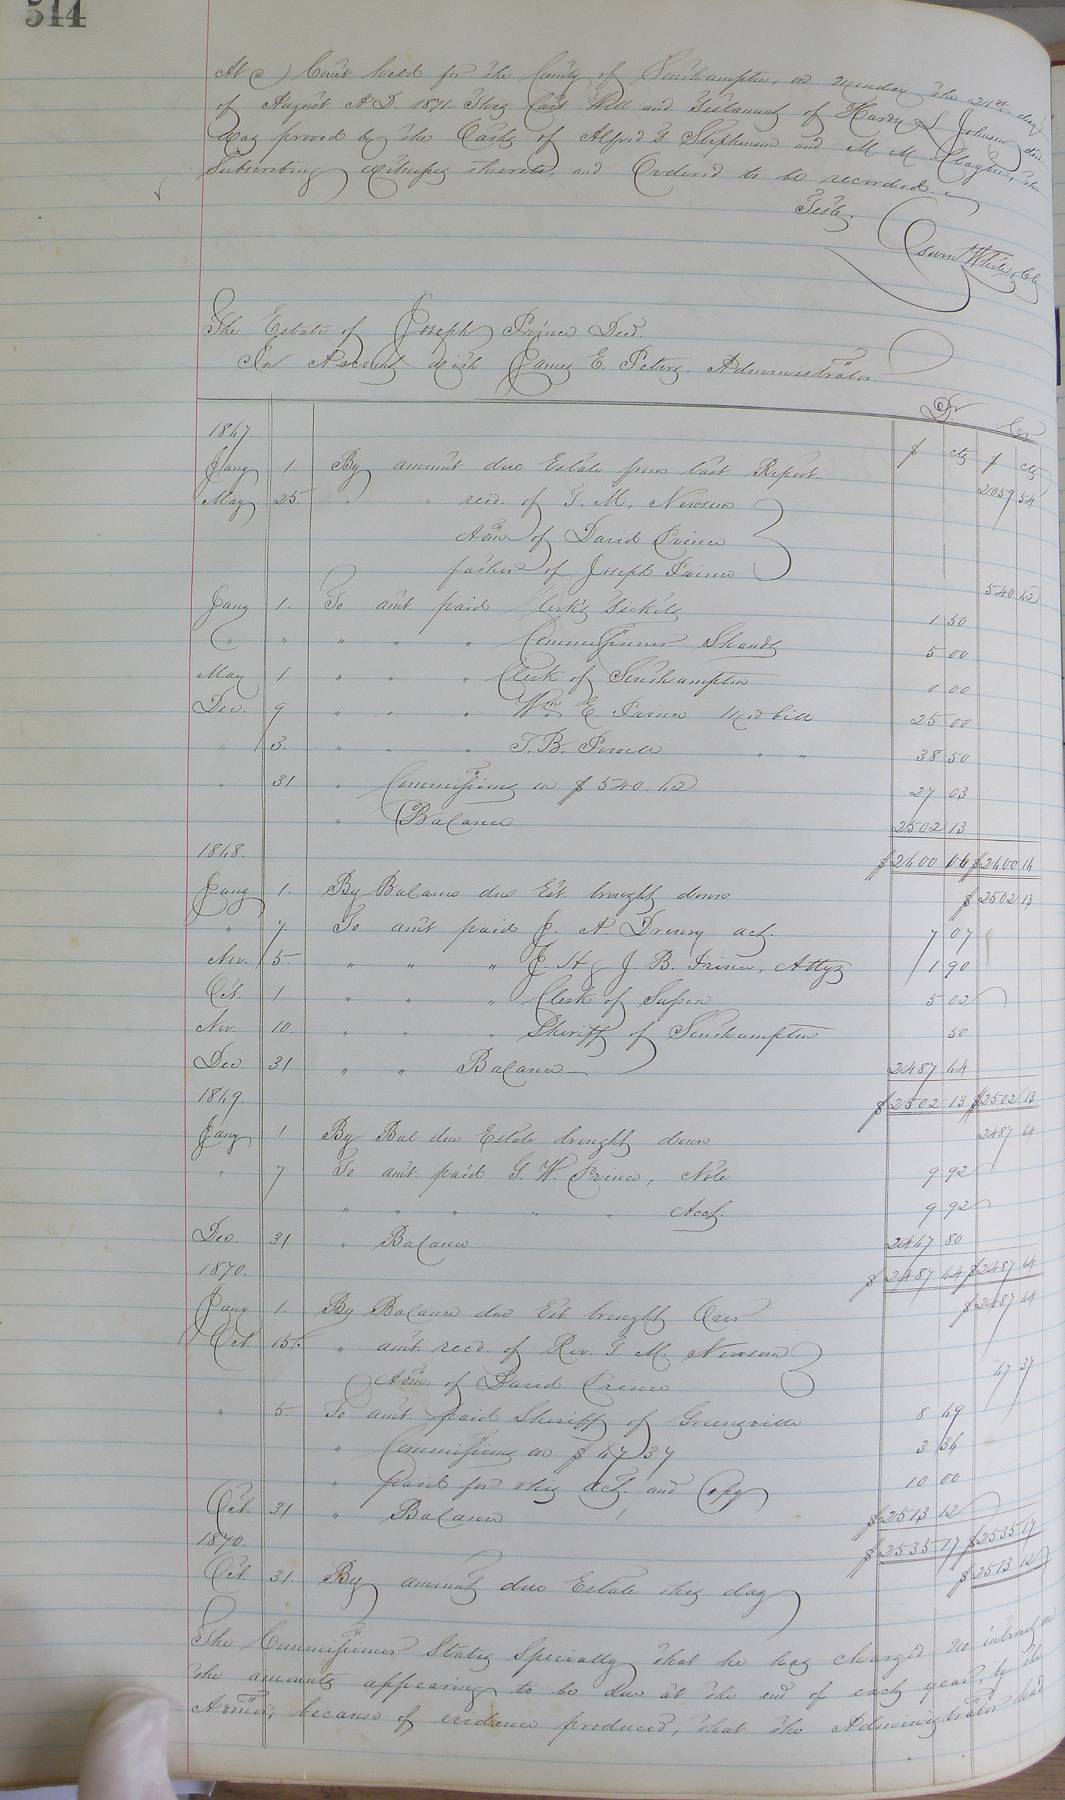 544
At a Court held for the County of Southampton, on Monday the 21st day
of August A.D. 1871. This Last Will and Testament of Hardy L Johnson decd
Was proved by the Oaths of Alfred G Stephenson and M. M. the
Subscribing Witnesses thereto, and Ordered to be recorded.
Teste.
Edwin White, Clk
The Estate of Joseph Prince Decd.
In Account with James E. Peters Administrator.
Dr Cr
1867 $ cts $ cts
Jany 1. By amount due Estate from last Report 2059 54
May 25. " " recd. of G. M. Newsom
Admr of David Prince
father of Joseph Prince 540 62
Jany 1. To amt. paid Clerk's Tickets 1 50
" " " " " Commissioner Shands 5 00
May 1 " " " Clerk of Southampton 1 00
Dec. 9 " " " Wm E. Prince Med bill 25 00
" 3. " " " T. B. Powell " " 38 50
" 31 " Commissions on $540.62 27 03
" Balance 2502 13
$2600 16 $2600 16
1868.
Jany 1. By Balance due Est. brought down $2502 13
" 7. To amt paid J. A. Drewry act. 7 07
Nov. 5. " " " J. H & J. B. Prince, Attys 1 90
Oct. 1 " " " Clerk of Sussex 5 02
Nov. 10. " " " Sheriff of Southampton 50
Dec. 31 " " Balance 2487 64
1869. $2502 13 $2502 13
Jany 1 By Bal due Estate brought down 2487 64
" 7 To amt. paid G. W. Prince, Note 9 92
" " " " " Acct. 9 92
Dec. 31 " Balance 2467 80
1870. $2487 64 $2487 64
Jany 1. By Balance due Est brought Over $2487 64
Oct. 15th. " amt. recd. of Rev. G. M. Newsom
Admr. of David Prince 47 37
" 5. To amt. paid Sheriff of Greensville 8 49
" Commissions on $47.37 3 36
" paid for this act. and Copy 10 00
Oct. 31 " Balance $2513 12
1870. $2535 17 $2535 17
Oct. 31. By amount due Estate this day $2513 12
The Commissioner States Specially that he has charged no interest on
the amounts appearing to be due at the end of each year, by the
Admr, because of evidence produced, that the Administrator had